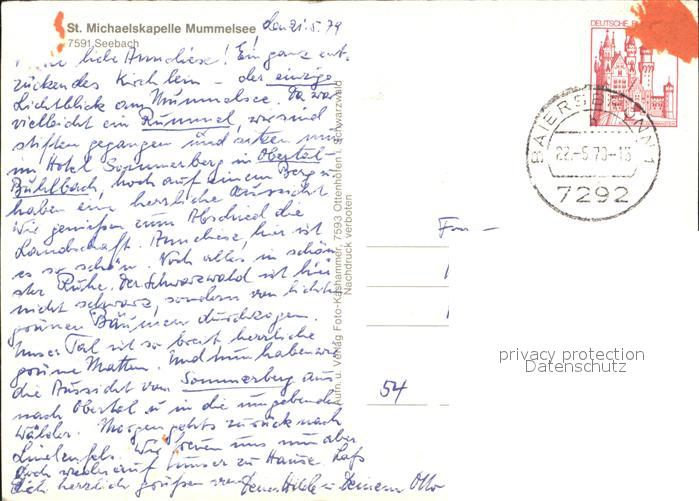 St. Michaelskapelle Mummelsee
7591 Seebach
den 21.5.79
liebe Anneliese! Ein ganz ent-
zückendes Kirchlein – der einzige
Lichtblick am Mummelsee. Da war
vielleicht ein Rummel, wir sind
stiften gegangen und sitzen nun
im Hotel Sommerberg in Obertal-
Buhlbach, hoch auf einem Berg u.
haben eine herrliche Aussicht
Wir genießen zum Abschied die
Landschaft. Anneliese, hier ist
es so schön. Noch alles in schön
ster Ruhe. Der Schwarzwald ist hier
nicht schwarz, sondern von lichten
grünen Bäumen durchzogen.
Unser Tal ist so breit, herrliche
grüne Matten. Und nun haben wir
die Aussicht vom Sommerberg aus
nach Obertal u. in die umgebenden
Wälder. Morgen gehts zurück nach
Lindenfels. Wir freuen uns nun aber
doch wieder auf unser zu Hause. Laß
Dich herzlich grüßen von Deiner Hilde u. Deinem Otto
Aufn. u. Verlag Foto-Kashammer, 7593 Ottenhöfen i. Schwarzwald
Nachdruck verboten
DEUTSCHE
BAIERSBRONN 1
22.-5.79-15
7292
54
privacy protection
Datenschutz